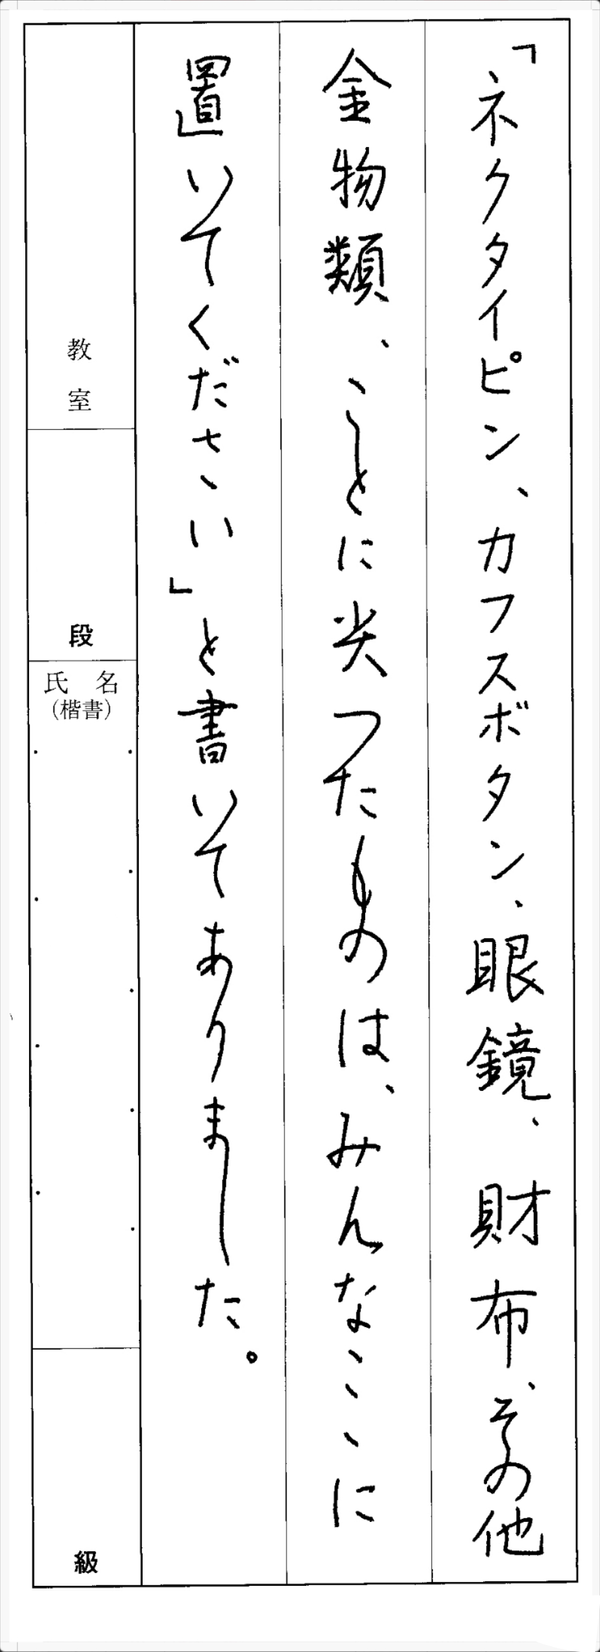 「ネクタイピン、カフスボタン、眼鏡、財布、その他
金物類、ことに尖ったものは、みんなここに
置いてください」と書いてありました。
教室
段
氏名
(楷書)
級